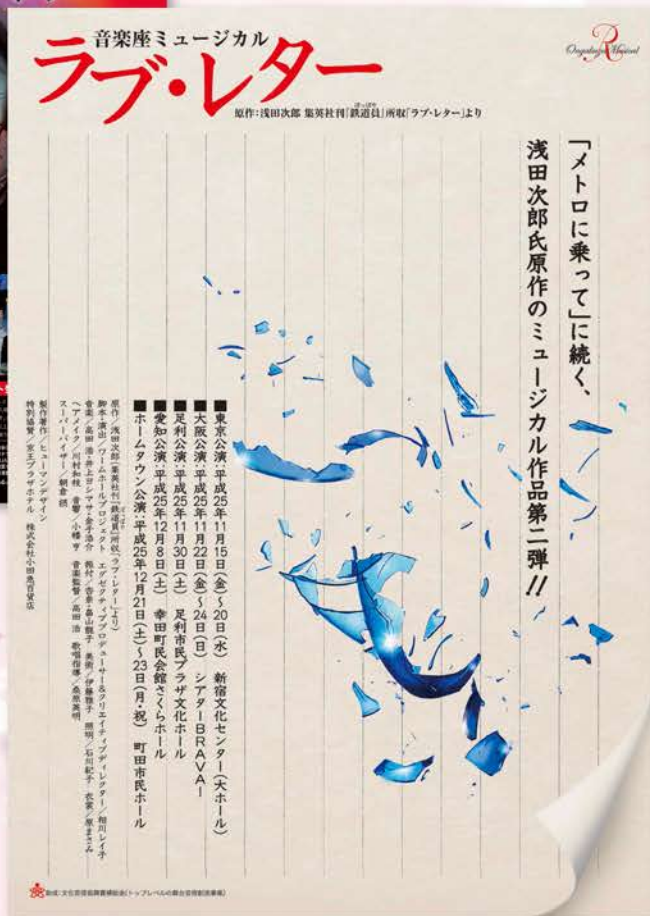 音楽座ミュージカル
ラブ・レター
原作:浅田次郎 集英社刊「鉄道員」所収「ラブ・レター」より
ぽっぽや
R
Ongakuza Musical
「メトロに乗って」に続く、
浅田次郎氏原作のミュージカル作品第二弾!!
■東京公演:平成25年11月15日(金)~20日(水) 新宿文化センター(大ホール)
■大阪公演:平成25年11月22日(金)~24日(日) シアターBRAVA!
■足利公演:平成25年11月30日(土) 足利市民プラザ文化ホール
■愛知公演:平成25年12月8日(土) 幸田町民会館さくらホール
■ホームタウン公演:平成25年12月21日(土)~23日(月・祝) 町田市民ホール
原作/浅田次郎(集英社刊「鉄道員」所収「ラブ・レター」より)
脚本・演出/ワームホールプロジェクト エグゼクティブプロデューサー&クリエイティブディレクター/相川レイ子
音楽/高田 浩・井上ヨシマサ・金子浩介 振付/杏奈・畠山龍子 美術/伊藤雅子 照明/石川紀子 衣裳/原まさみ
ヘアメイク/川村和枝 音響/小幡 亨 音楽監督/高田 浩 歌唱指導/桑原英明
スーパーバイザー/朝倉 摂
製作著作/ヒューマンデザイン
特別協賛/京王プラザホテル 株式会社小田急百貨店
助成:文化芸術振興費補助金(トップレベルの舞台芸術創造事業)